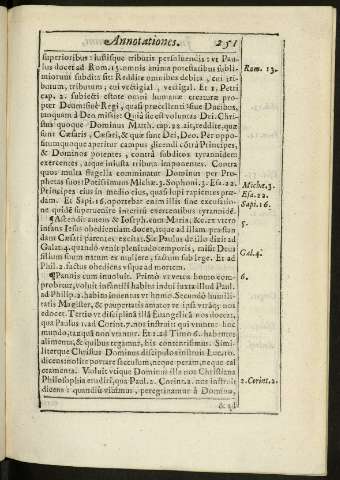 Annotationes. 251
superioribus: iustisque tributis persoluendis: vt Pau-
lus docet ad Rom. 13. omnis anima potestatibus subli-
mioribus subdita sit: Reddite omnibus debita, cui tri-
butum, tributum; cui vectigal, vectigal. Et 1. Petri
cap. 2. subiecti estote omni humanæ creaturæ pro-
pter Deum: siuè Regi, quasi præcellenti: siue Ducibus,
tanquam à Deo missis: Quia sic est voluntas Dei. Chri-
stus quoque Dominus Matth. cap. 22. ait, reddite, quæ
sunt Cæsaris, Cæsari, & quæ sunt Dei, Deo. Per oppo-
situm quoque aperitur campus dicendi côtrà Principes,
& Dominos potentes, contrà subditos tyrannidem
exercentes, atque iniusta tributa imponentes. Contra
quos multa flagella comminatur Dominus per Pro-
phetas suos: Potissimum Michæ. 3. Sophoni. 3. Esa. 22.
Principes eius in medio eius, quasi lupi rapientes præ-
dam. Et Sapi. 16. oportebat enim illis sine excusatio-
ne quidē superuenire interitū exercentibus tyrānidē.
¶ Ascendit autem & Ioseph, cum Maria, &c. vt vtero
infans Iesus obedientiam docet, atque ad illam præstan
dam Cæsari parentes excitat. Sic Paulus de illo dixit ad
Galat. 4. quando venit plenitudo temporis, misit Deus
filium suum natum ex muliere, factum sub lege. Et ad
Phil. 2. factus obediens vsque ad mortem.
¶ Pannis eum inuoluit. Primò vt vera homo com-
probetur, voluit infantili habitu indui iuxta illud Paul.
ad Philip. 2. habitu inuentus vt homo. Secundò humili-
tatis Magister, & paupertatis amator re ipsa vtraque nos
edocet. Tertiò vt disciplina illa Euangelica nos docear,
qua Paulus 1. ad Corint. 7. nos instruit qui vtuntur hoc
mundo, tanquā non vtantur. Et 1. ad Timo 6. habentes
alimenta, & quibus tegamur, his contenti simus. Simi-
literque Christus Dominus discipulos instruit Luc. 10.
dicens: nolite portare sacculum, neque peram, neque cal
ceamenta. Voluit vtique Dominus illa nos Christiana
Philosophia erudiri, qua Paul. 2. Corint. 2. nos instruit
dicens: quandiù viuimus, peregrinamur à Domino,
& ad
Rom. 13.
Michæ. 3.
Esa. 22.
Sapi. 16.
5.
Gal. 4.
6.
2. Corint. 2.